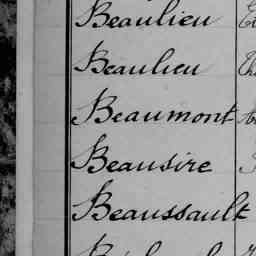 Beaulieu
Beaulieu
Beaumont
Beausire
Beaussault